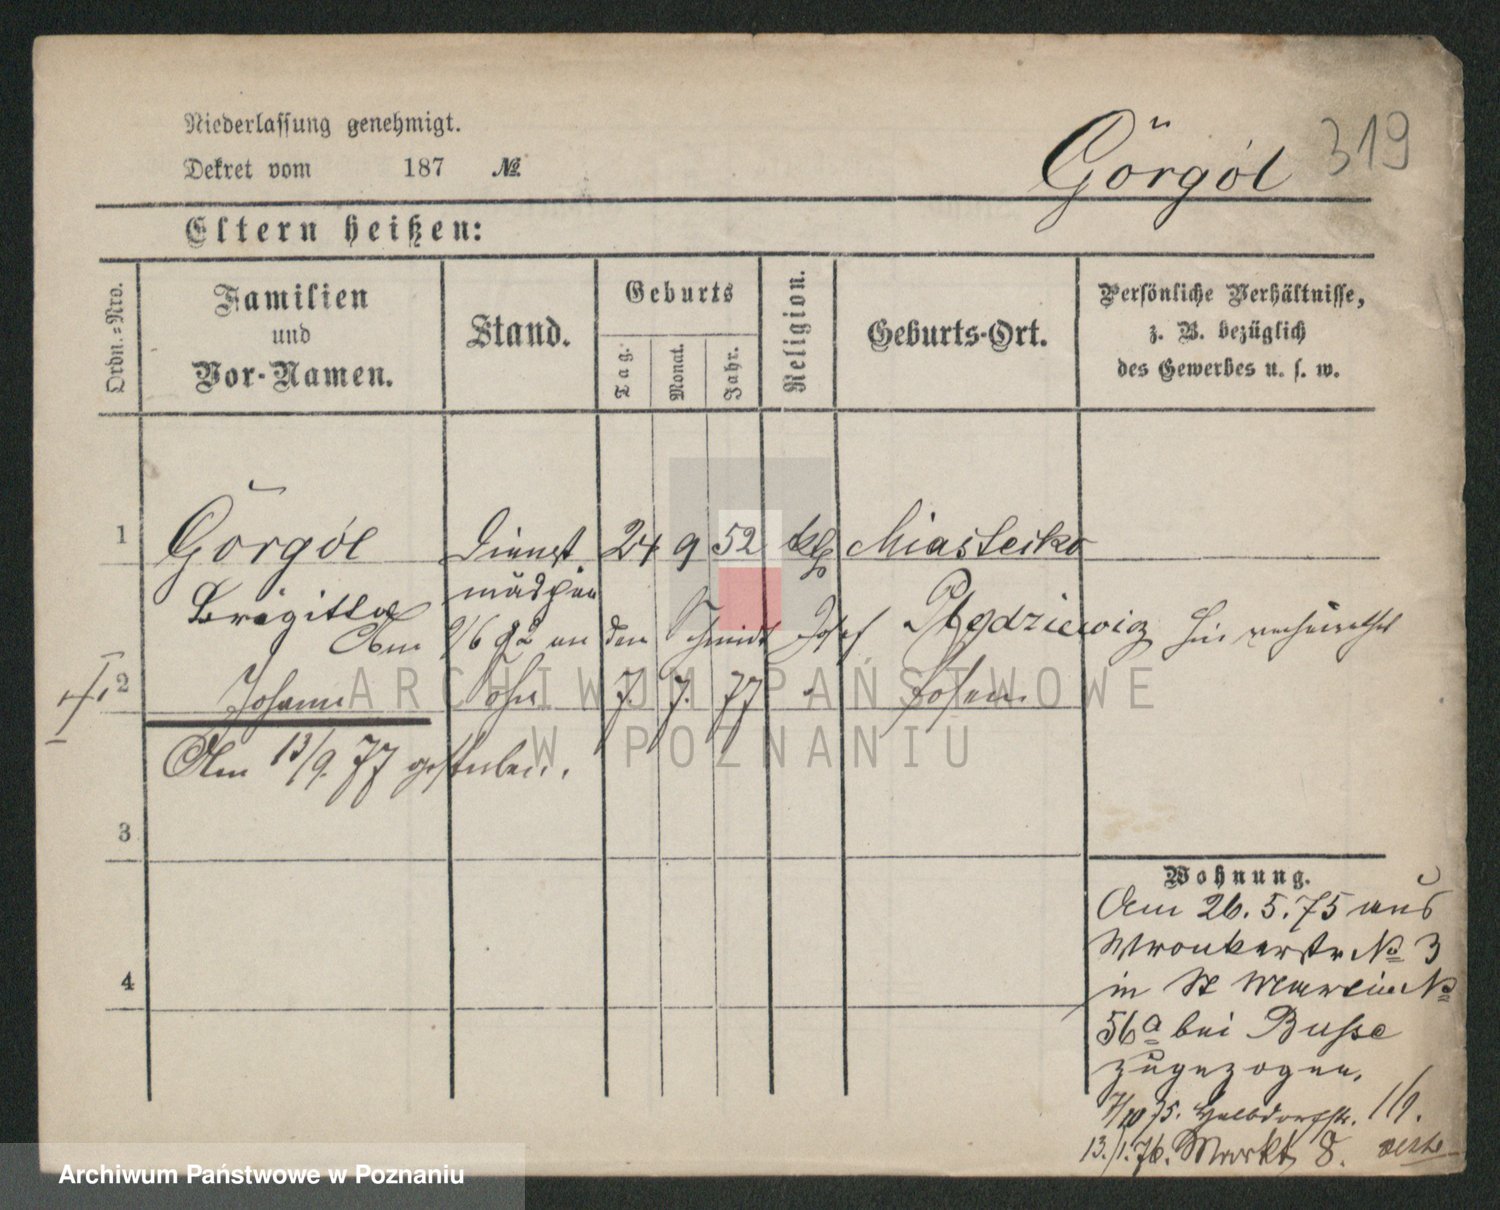 Niederlassung genehmigt.
Dekret vom 187 №
Görgól 319
Eltern heißen:
Ordn.-Nro.
Familien und Vor-Namen.
Stand.
Geburts
Tag.
Monat.
Jahr.
Religion.
Geburts-Ort.
Persönliche Verhältnisse,
z. B. bezüglich
des Gewerbes u. s. w.
1 Görgól Dienst 24 9 52 kth Miasteiko
Brigitta mädchen
Am 9/6 92 an den Schmidt Josef hier verheirathet
2 Johann Sohn 7. 7. 77 Posen
Am 13/9. 77 gestorben.
3
4
Wohnung.
Am 26.5.75 aus
Wronkerstr № 3
in St Martin №
56a bei Busse
zugezogen.
7/10 75. Halbdorfstr. 1/9.
13./1.76. Markt 8.
ARCHIWUM PAŃSTWOWE
W POZNANIU
Archiwum Państwowe w Poznaniu